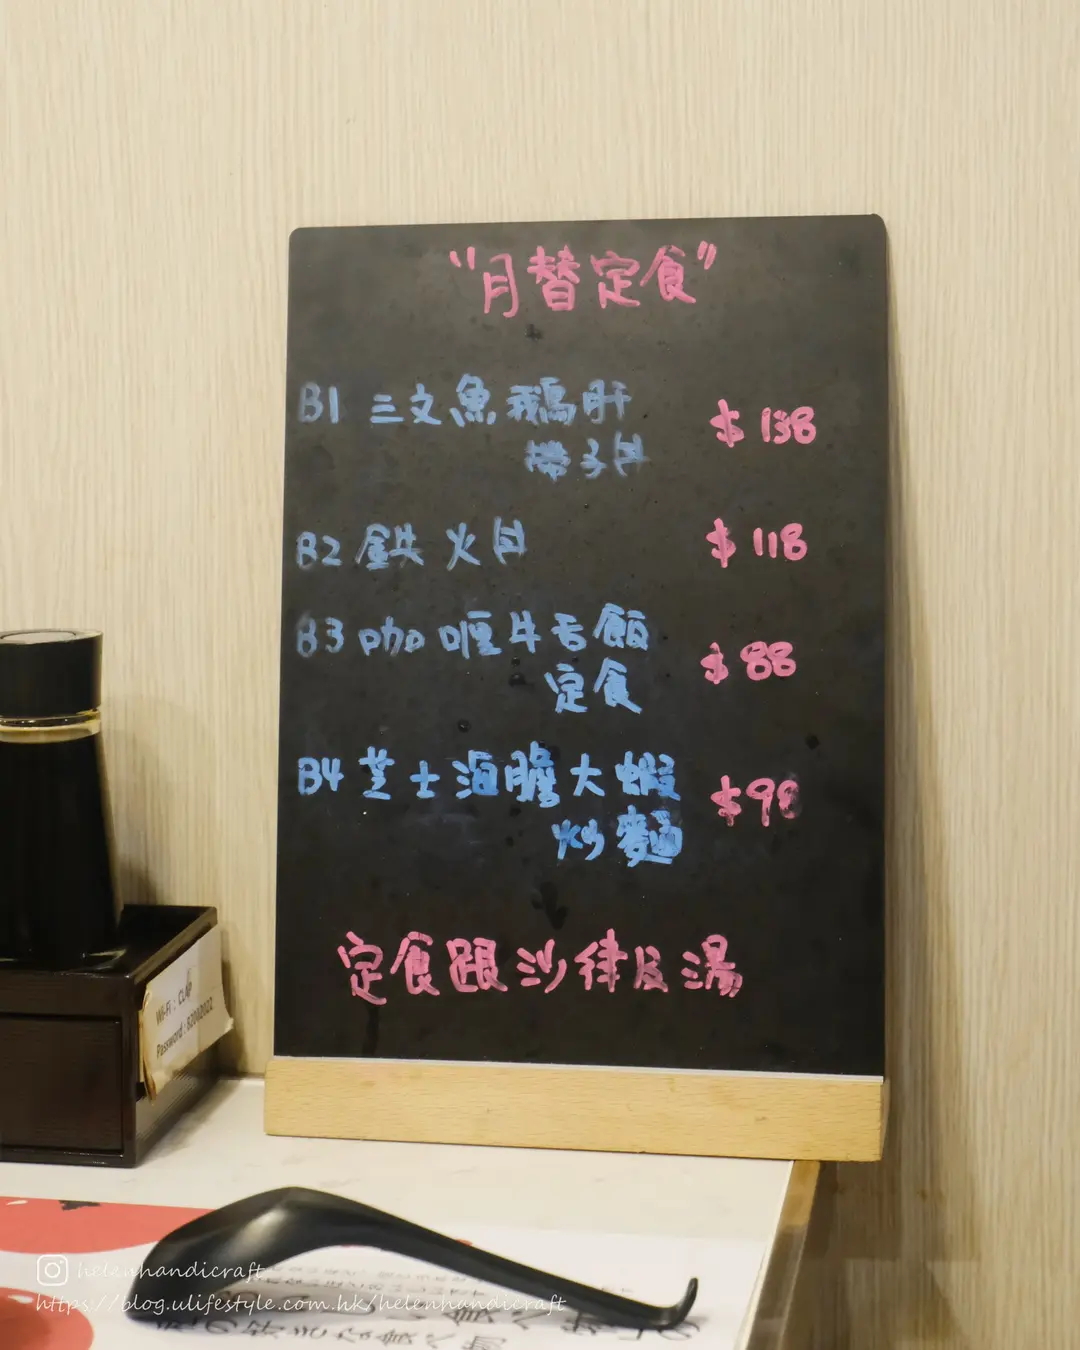 "月替定食"
B1 三文魚鵝肝
帶子丼
$138
B2 鉄火丼
$118
B3 咖喱牛舌飯
定食
$88
B4 芝士海膽大蝦
炒麵
$98
定食跟沙律及湯
Wi-Fi : CLAP
Password : 82002022
helenhandicraft
https://blog.ulifestyle.com.hk/helenhandicraft